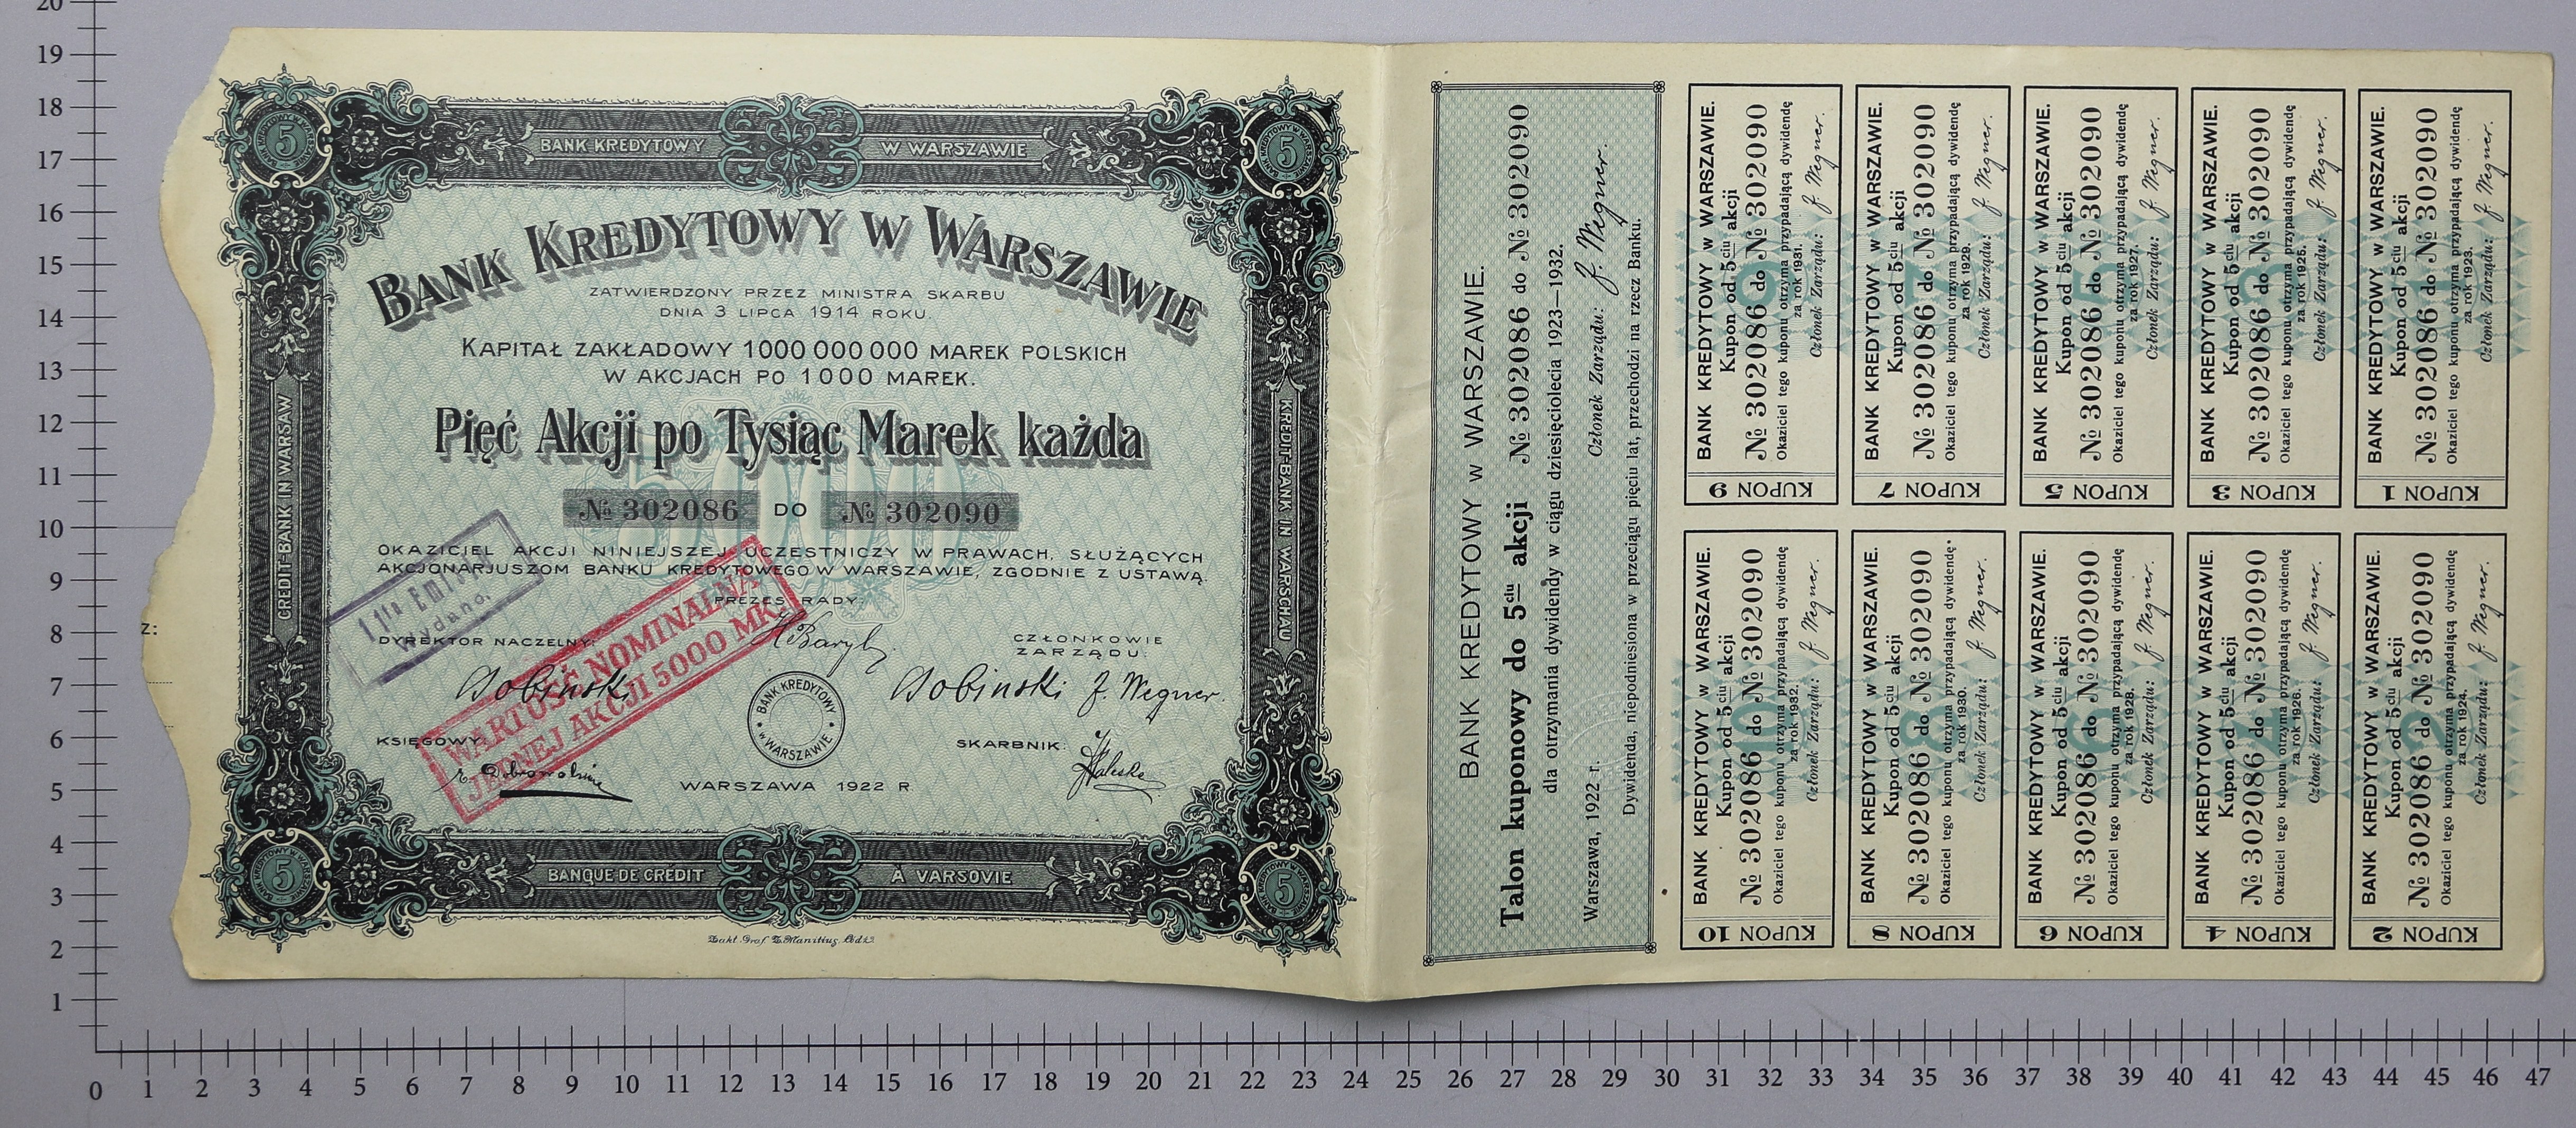 BANK KREDYTOWY W WARSZAWIE
CREDIT-BANK IN WARSAW
KREDIT-BANK IN WARSCHAU
BANK KREDYTOWY W WARSZAWIE
ZATWIERDZONY PRZEZ MINISTRA SKARBU
DNIA 3 LIPCA 1914 ROKU.
KAPITAŁ ZAKŁADOWY 1000 000 000 MAREK POLSKICH
W AKCJACH PO 1000 MAREK.
Pięć Akcji po Tysiąc Marek każda
5000
№ 302086 DO № 302090
OKAZICIEL AKCJI NINIEJSZEJ UCZESTNICZY W PRAWACH, SŁUŻĄCYCH
AKCJONARJUSZOM BANKU KREDYTOWEGO W WARSZAWIE, ZGODNIE Z USTAWĄ.
PREZES RADY:
DYREKTOR NACZELNY:
CZŁONKOWIE
ZARZĄDU:
Sobinski
Sobinski J. Wegner.
BANK KREDYTOWY w WARSZAWIE
KSIĘGOWY:
SKARBNIK:
WARSZAWA 1922 R
WARTOŚĆ NOMINALNA
JEDNEJ AKCJI 5000 MK.
Wydano.
BANQUE DE CRÉDIT À VARSOVIE
5
5
5
5
z:
BANK KREDYTOWY w WARSZAWIE.
Talon kuponowy do 5ciu akcji № 302086 do № 302090
dla otrzymania dywidendy w ciągu dziesięciolecia 1923—1932.
Warszawa, 1922 r. Członek Zarządu: J. Wegner.
Dywidenda, niepodniesiona w przeciągu pięciu lat, przechodzi na rzecz Banku.
KUPON 9
BANK KREDYTOWY w WARSZAWIE.
Kupon od 5ciu akcji
№ 302086 do № 302090
Okaziciel tego kuponu otrzyma przypadającą dywidendę
za rok 1931.
Członek Zarządu: J. Wegner.
KUPON 7
BANK KREDYTOWY w WARSZAWIE.
Kupon od 5ciu akcji
№ 302086 do № 302090
Okaziciel tego kuponu otrzyma przypadającą dywidendę
za rok 1929.
Członek Zarządu: J. Wegner.
KUPON 5
BANK KREDYTOWY w WARSZAWIE.
Kupon od 5ciu akcji
№ 302086 do № 302090
Okaziciel tego kuponu otrzyma przypadającą dywidendę
za rok 1927.
Członek Zarządu: J. Wegner.
KUPON 3
BANK KREDYTOWY w WARSZAWIE.
Kupon od 5ciu akcji
№ 302086 do № 302090
Okaziciel tego kuponu otrzyma przypadającą dywidendę
za rok 1925.
Członek Zarządu: J. Wegner.
KUPON 1
BANK KREDYTOWY w WARSZAWIE.
Kupon od 5ciu akcji
№ 302086 do № 302090
Okaziciel tego kuponu otrzyma przypadającą dywidendę
za rok 1923.
Członek Zarządu: J. Wegner.
KUPON 10
BANK KREDYTOWY w WARSZAWIE.
Kupon od 5ciu akcji
№ 302086 do № 302090
Okaziciel tego kuponu otrzyma przypadającą dywidendę
za rok 1932.
Członek Zarządu: J. Wegner.
KUPON 8
BANK KREDYTOWY w WARSZAWIE.
Kupon od 5ciu akcji
№ 302086 do № 302090
Okaziciel tego kuponu otrzyma przypadającą dywidendę
za rok 1930.
Członek Zarządu: J. Wegner.
KUPON 6
BANK KREDYTOWY w WARSZAWIE.
Kupon od 5ciu akcji
№ 302086 do № 302090
Okaziciel tego kuponu otrzyma przypadającą dywidendę
za rok 1928.
Członek Zarządu: J. Wegner.
KUPON 4
BANK KREDYTOWY w WARSZAWIE.
Kupon od 5ciu akcji
№ 302086 do № 302090
Okaziciel tego kuponu otrzyma przypadającą dywidendę
za rok 1926.
Członek Zarządu: J. Wegner.
KUPON 2
BANK KREDYTOWY w WARSZAWIE.
Kupon od 5ciu akcji
№ 302086 do № 302090
Okaziciel tego kuponu otrzyma przypadającą dywidendę
za rok 1924.
Członek Zarządu: J. Wegner.
20
19
18
17
16
15
14
13
12
11
10
9
8
7
6
5
4
3
2
1
0 1 2 3 4 5 6 7 8 9 10 11 12 13 14 15 16 17 18 19 20 21 22 23 24 25 26 27 28 29 30 31 32 33 34 35 36 37 38 39 40 41 42 43 44 45 46 47